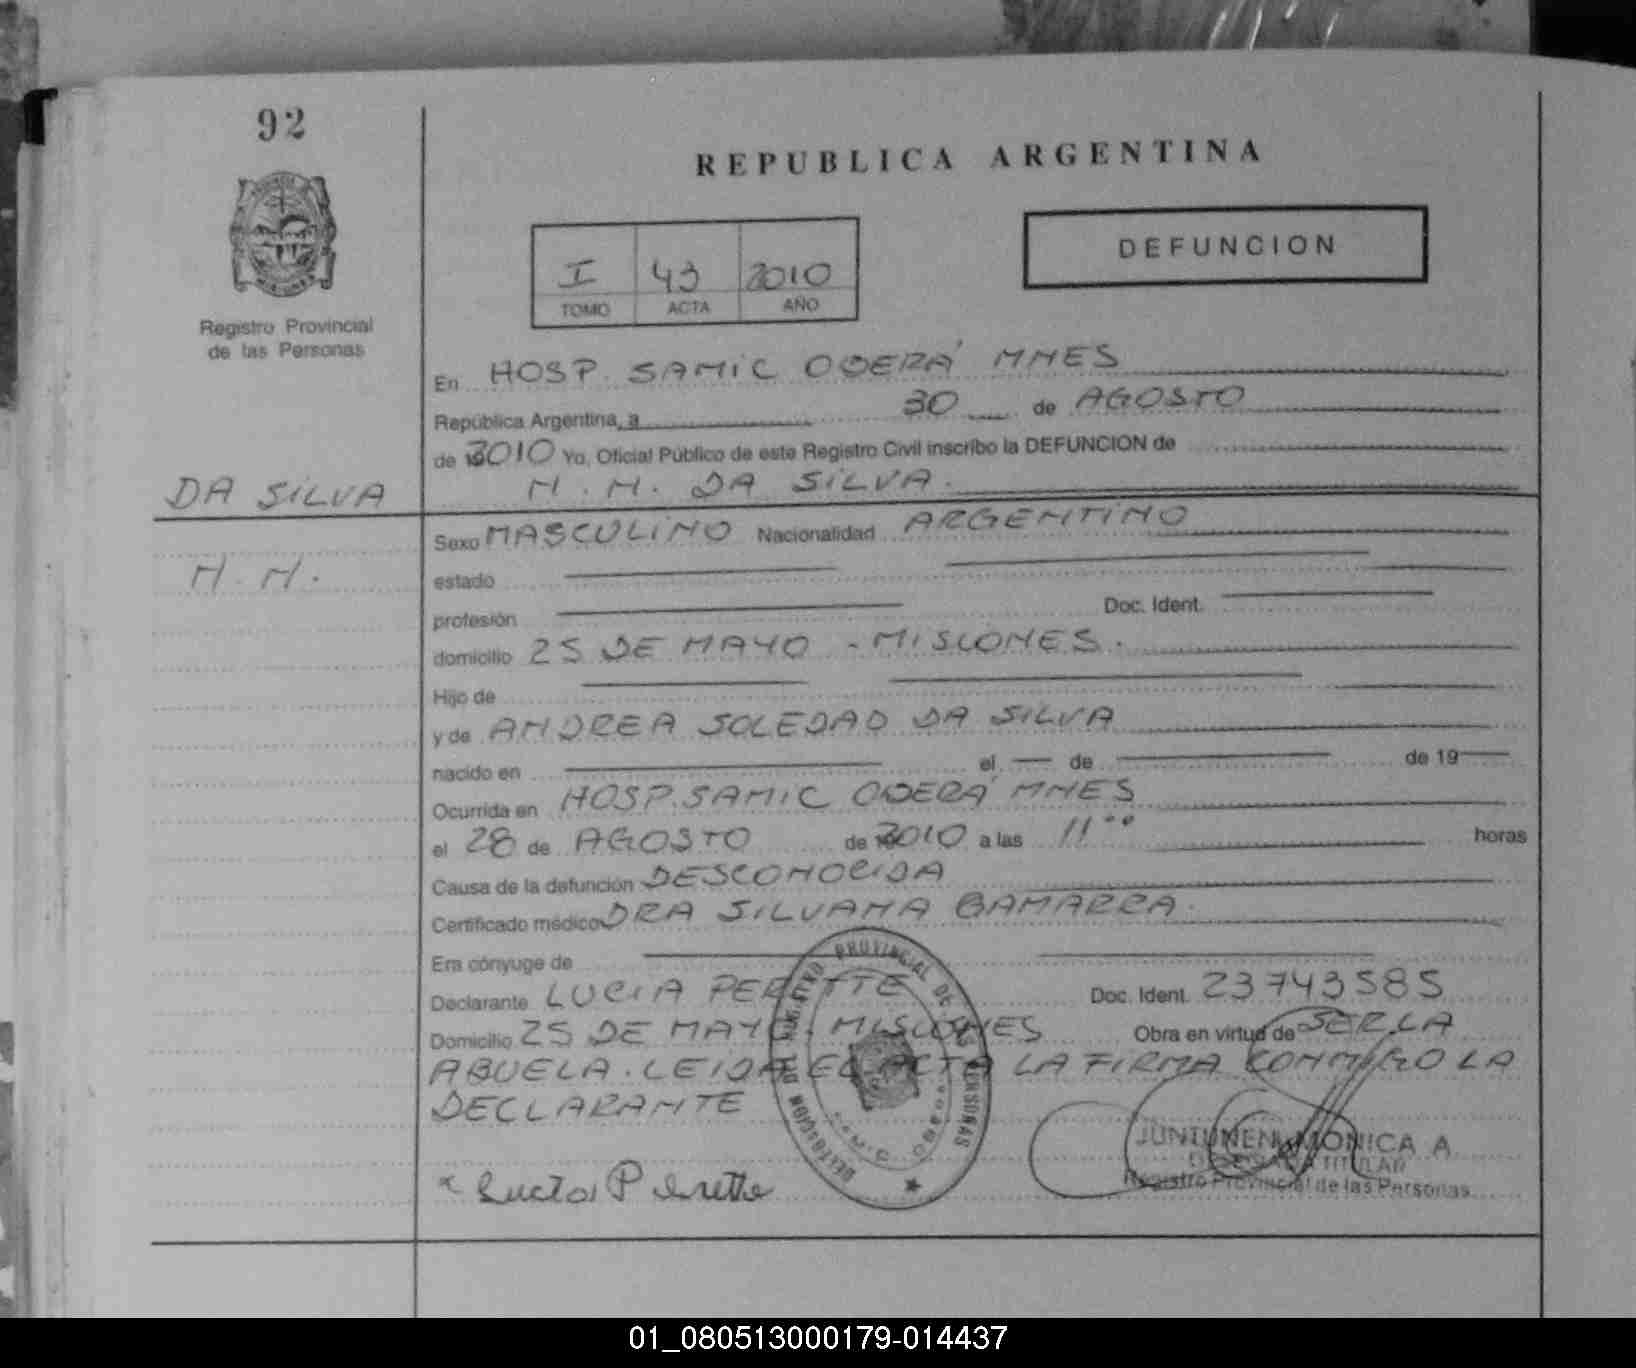 92
REPUBLICA ARGENTINA
I 43 2010
TOMO ACTA AÑO
DEFUNCION
Registro Provincial
de las Personas
En HOSP. SAMIC OBERÁ MNES
República Argentina, a 30 de AGOSTO
de 2010 Yo, Oficial Público de este Registro Civil inscribo la DEFUNCION de
DA SILVA
N. N. DA SILVA.
N. N.
Sexo MASCULINO Nacionalidad ARGENTINO
estado
profesión Doc. Ident.
domicilio 25 DE MAYO - MISIONES.
Hijo de
y de ANDREA SOLEDAD DA SILVA
nacido en el de de 19
Ocurrida en HOSP. SAMIC OBERÁ MNES
el 28 de AGOSTO de 2010 a las 11°° horas
Causa de la defunción DESCONOCIDA
Certificado médico DRA SILVANA GAMARRA.
Era cónyuge de
Declarante LUCIA PERETTE Doc. Ident. 23743585
Domicilio 25 DE MAYO. MISIONES Obra en virtud de SER LA
ABUELA. LEIDA EL ACTA LA FIRMA CONMIGO LA
DECLARANTE
x Lucia Perette
PROVINCIAL DE LAS PERSONAS
JUNTUNEN MONICA A.
TITULAR
Registro Provincial de las Personas
01_080513000179-014437